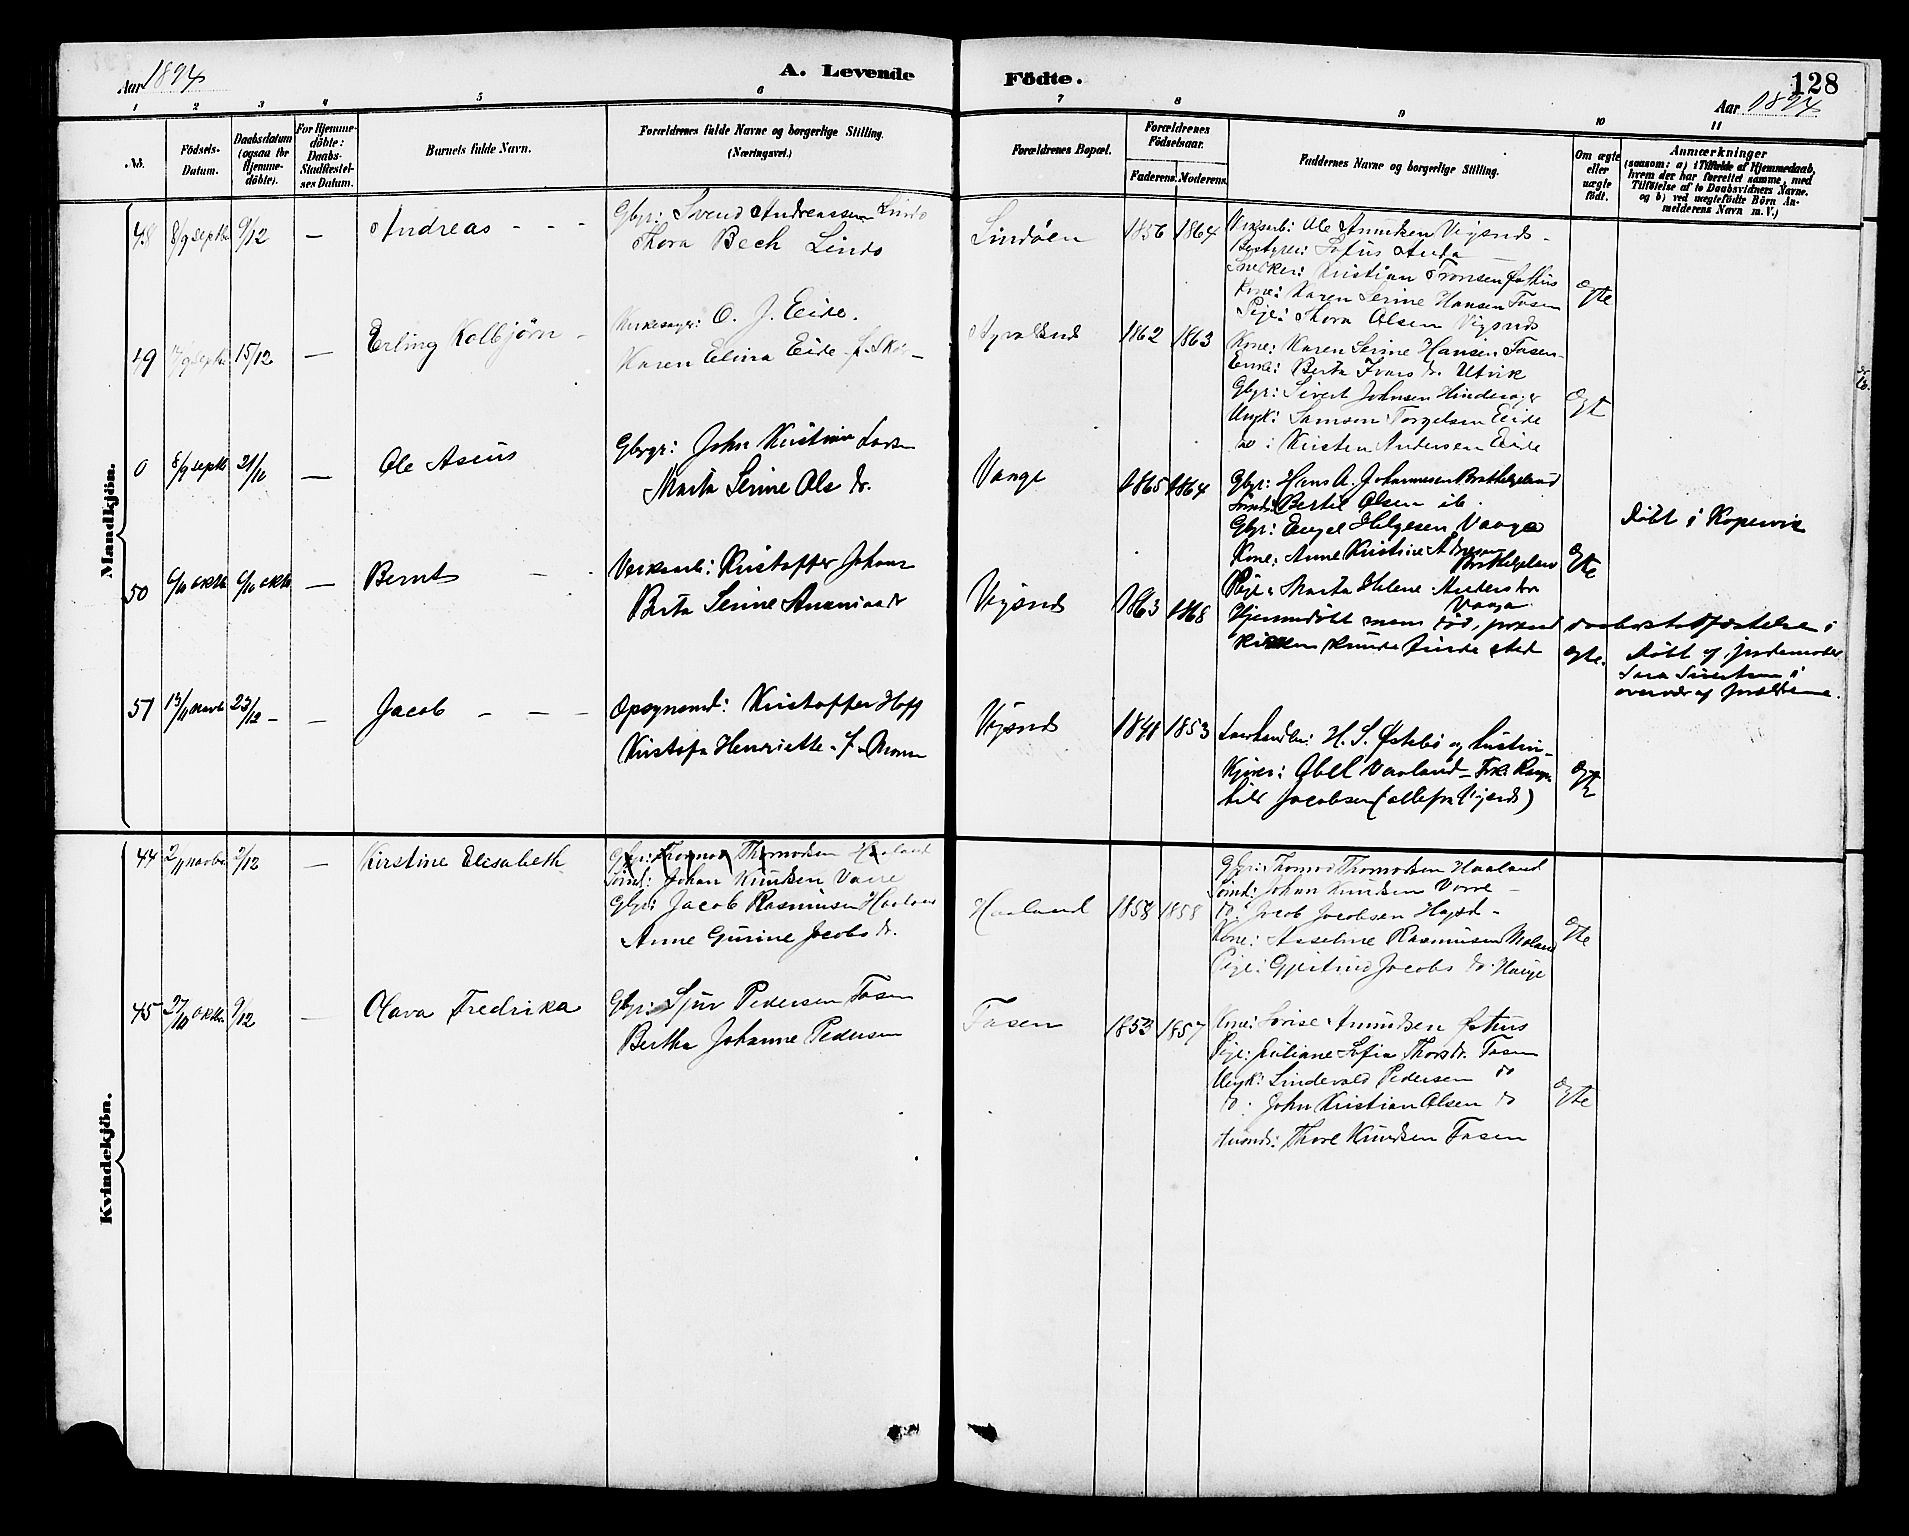 Aar 1894
A. Levende
Födte.
128
Aar 1894
1 2 3 4 5 6 7 8 9 10 11
No.
Födsels-
Datum.
Daabsdatum
(ogsaa for
Hjemme-
döbte).
For Hjemme-
döbte:
Daabs-
Stadfæstel-
ses Datum.
Barnets fulde Navn.
Forældrenes fulde Navne og borgerlige Stilling.
(Næringsvei.)
Forældrenes Bopæl.
Forældrenes
Födselsaar.
Faderens. Moderens.
Faddernes Navne og borgerlige Stilling.
Om ægte
eller
uægte
födt.
Anmærkninger
(saasom: a) i Tilfælde af Hjemmedaab,
hvem der har forrettet samme, med
Tilföielse af to Daabsvidners Navne.
og b) ved uægtefödte Börn An-
melderens Navn m. V.)
Mandkjön.
48 8/9 septbr 9/12 — Andreas - - -
Gbr: Svend Andreassen Lindö
Thora Bech Lindö
Lindöen 1856 1864
Verksarb: Ole Amundsen Vigsnes -
Bestyrer: Sofus Anda
Snekker: Kristian Tronsen Østhus
Kone: Karen Serine Hansen Fosen
Pige: Thora Olsen Vigsnes
Ægte
49 septbr 15/12 — Erling Kolbjörn -
Kirkesanger: O. J. Eide.
Karen Elina Eide f.
1862 1863
Kone: Karen Serine Hansen Fosen
Enke: Berta Ivars dr. Utvik
Gbr: Sivert Johnsen Hindesager
Ungk: Samson Torgelsen Eide
do: Kristen Andersen Eide
Ægte
0 8/9 septbr 21/10 — Ole Aseus
Gbr: John Kristian Larsen
Marta Serine Ols dr.
Vaage 1865 1864
Gbr: Hans A. Johannesen Bratthelgeland
Bertel Olsen ib.
Gbr: Engel Helgesen Vaage
Kone: Anne Kristine
Pige: Marta Helene Anders dr
Vaage
Ægte
Döbt i Kopervik
50 6/10 oktbr 6/10 oktbr — Bernt - -
Verksarb: Kristoffer Johans
Berta Serine Ananias dr
Vigsnes 1863 1868
Hjemmedöbt men död, förend daabsstadfæstelse i
kirken kunde finde sted
Ægte.
Döbt af jordemoder
Sara Sivertsen i
overvær af forældrene.
51 13/11 novbr 23/12 - — Jacob - - -
Opsynsmd: Kristoffer Hoff
Kristofa Henriette f.
Vigsnes 1848 1853
H. S. Østebö og hustru
Kjörer: Abel Vaaland - Frk. Ragn-
hild Jacobsen (alle fra Vigsnes)
Ægte
Kvindekjön.
44 2/11 novbr 2/12 — Kirstine Elisabeth
Gbr: Tormod Thormodsen Haaland
Sömd: Johan Knudsen Vorre
Gbr: Jacob Rasmusen Haaland
Anne Gurine Jacobs dr.
Haaland 1858 1858
Gbr: Thomod Thomodsen Haaland
Sömd: Johan Knudsen Vorre -
do: Jacob Jacobsen
Kone: Asseline Rasmusen Moland
Pige: Gjertrud Jacobs dr. Hauge
Ægte
45 27/10 oktbr 9/12 — Olava Fredrika
Gbr: Sjur Pedersen Fosen
Bertha Johanne Pedersen
Fosen 1853 1857
Kone: Lovise Amundsen Østhus
Pige: Juliane Sofia Thors dr. Fosen
Ungk: Lindevald Pedersen do
do: John Kristian Olsen do
Thore Knudsen Fosen
Ægte